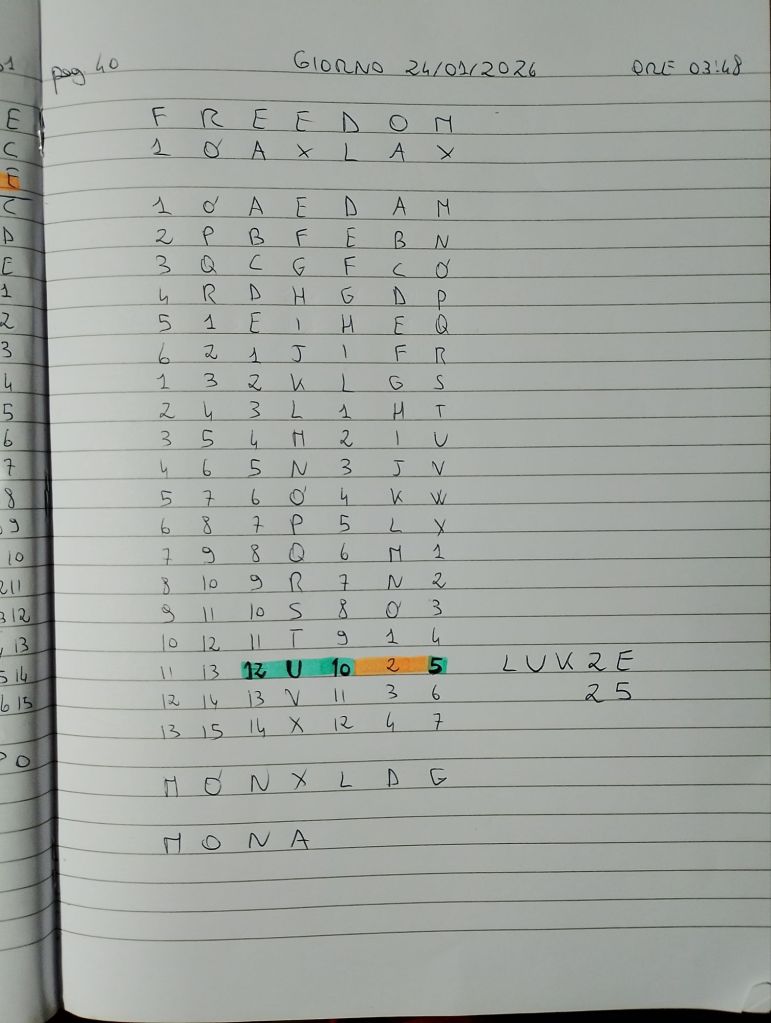 pag 40 GIORNO 24/01/2026 ORE 03:48
F R E E D O M
1 Ó A X L A X
1 Ó A E D A M
2 P B F E B N
3 Q C G F C Ó
4 R D H G D P
5 1 E I H E Q
6 2 1 J I F R
1 3 2 K L G S
2 4 3 L 1 H T
3 5 4 M 2 I U
4 6 5 N 3 J V
5 7 6 Ó 4 K W
6 8 7 P 5 L X
7 9 8 Q 6 M 1
8 10 9 R 7 N 2
9 11 10 S 8 Ó 3
10 12 11 T 9 1 4
11 13 12 U 10 2 5 L U K 2 E
12 14 13 V 11 3 6 2 5
13 15 14 X 12 4 7
M Ó N X L D G
M O N A
E
C
E
C
D
E
1
2
3
4
5
6
7
8
9
10
11
12
13
14
15
O